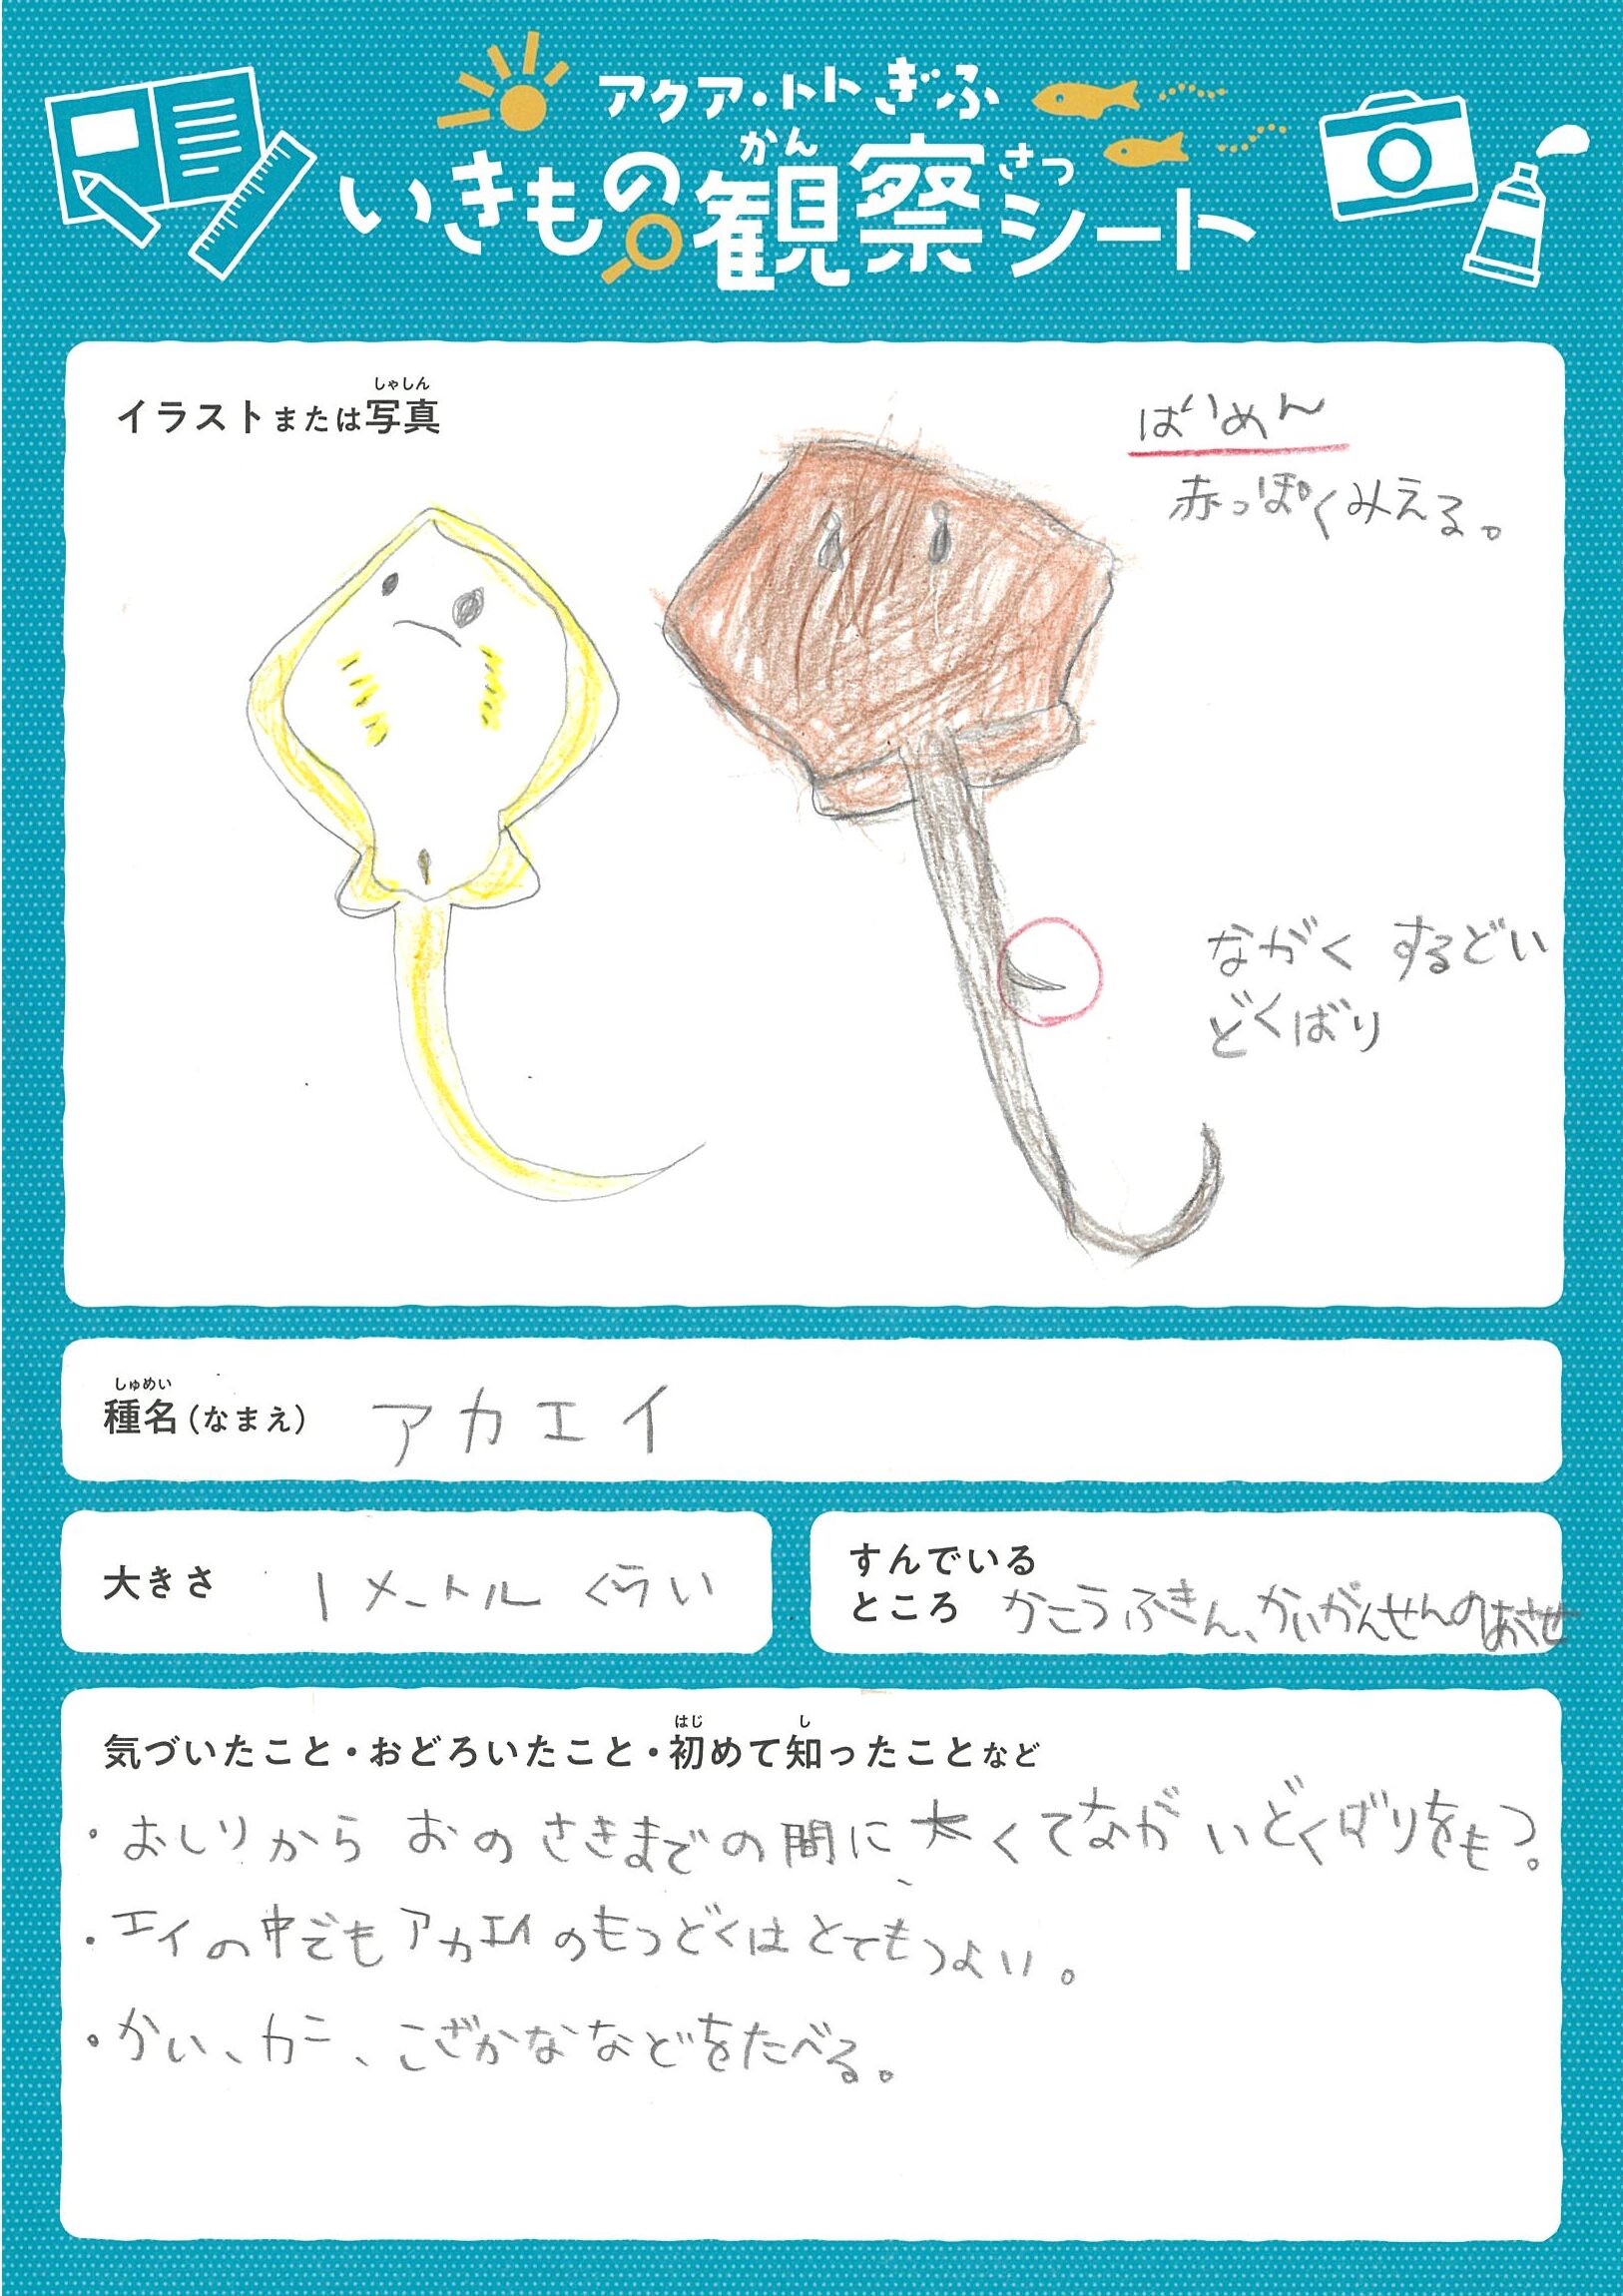 アクア・トトぎふ
いきもの観察シート
かん さつ
しゃしん
イラストまたは写真
はいめん
赤っぽくみえる。
ながく するどい
どくばり
しゅめい
種名(なまえ) アカエイ
大きさ 1メートルくらい
すんでいる
ところ かこうふきん、かいがんせんのあさせ
はじ し
気づいたこと・おどろいたこと・初めて知ったことなど
・おしりから おのさきまでの間に太くてながいどくばりをもつ。
・エイの中でもアカエイのもつどくはとてもつよい。
・かい、カニ、こざかななどをたべる。